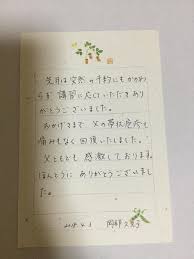 先月は突然の予約にもかかわ
らず 講習に応じていただきあり
がとうございました。
おかげさまで 父の帯状疱疹も
痛みもなく回復いたしました。
父ともども 感激しております。
ほんとうに ありがとうございまし
た。